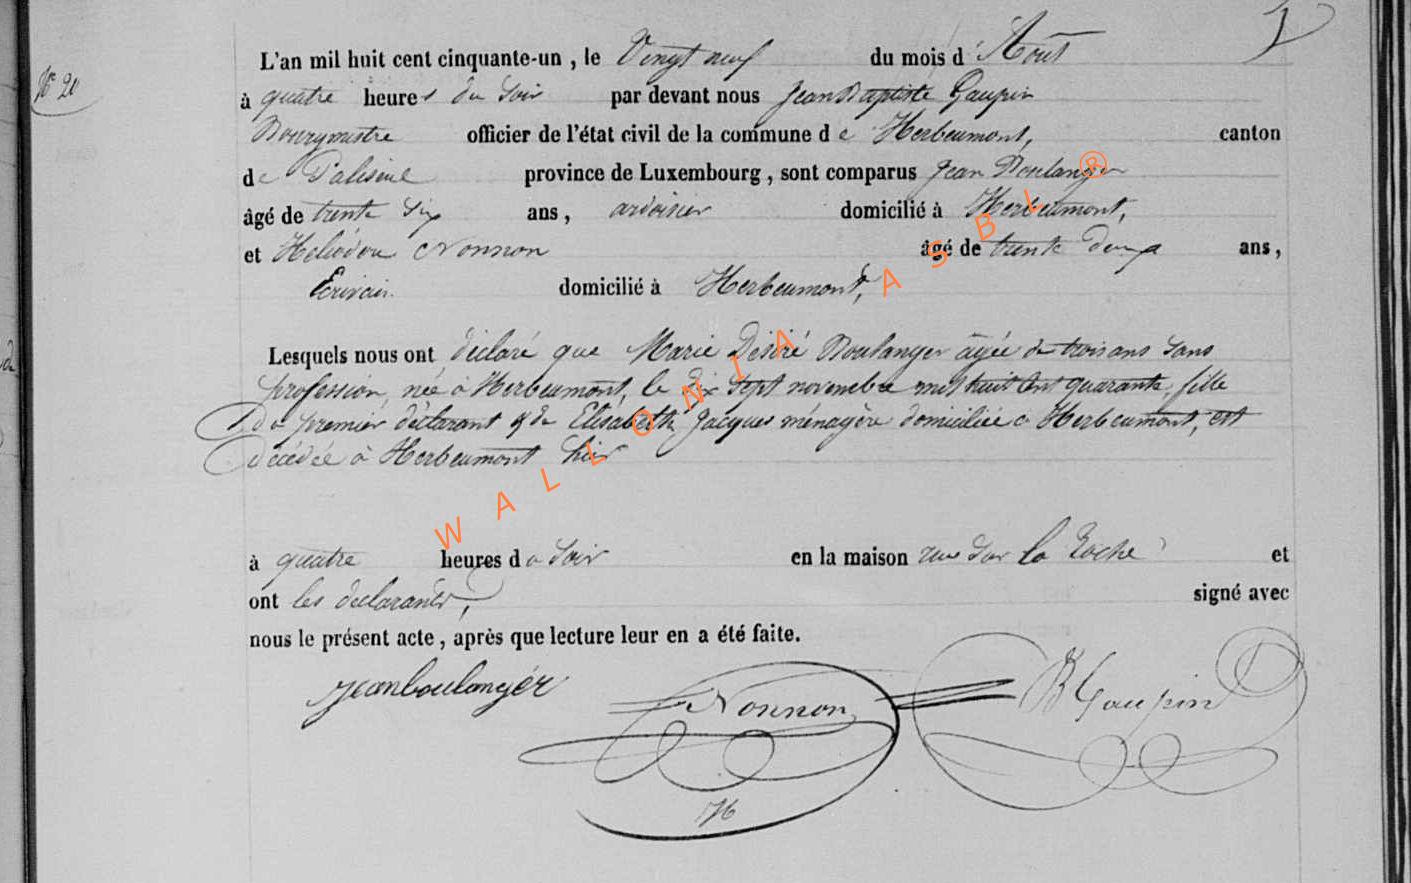 N° 20
L'an mil huit cent cinquante-un, le Vingt neuf du mois d'Août
à quatre heures du Soir par devant nous Jean Baptiste Gaupin
Bourgmestre officier de l'état civil de la commune de Herbeumont, canton
de Paliseul province de Luxembourg, sont comparus Jean Boulanger
âgé de trente Six ans, ardoisier domicilié à Herbeumont,
et Heliodore Nonnon âgé de trente deux ans,
Ecrivain domicilié à Herbeumont,
Lesquels nous ont déclaré que Marie Desiré Boulanger âgée de trois ans Sans
profession, née à Herbeumont, le dix Sept novembre mil huit cent quarante, fille
du premier déclarant & de Elisabeth Jacques ménagère domiciliée à Herbeumont, est
décédée à Herbeumont hier
à quatre heures du Soir en la maison rue Sur la Roche et
ont les déclarants, signé avec
nous le présent acte, après que lecture leur en a été faite.
jeanboulanger Nonnon JB Gaupin
WALLONIA ASBL ®